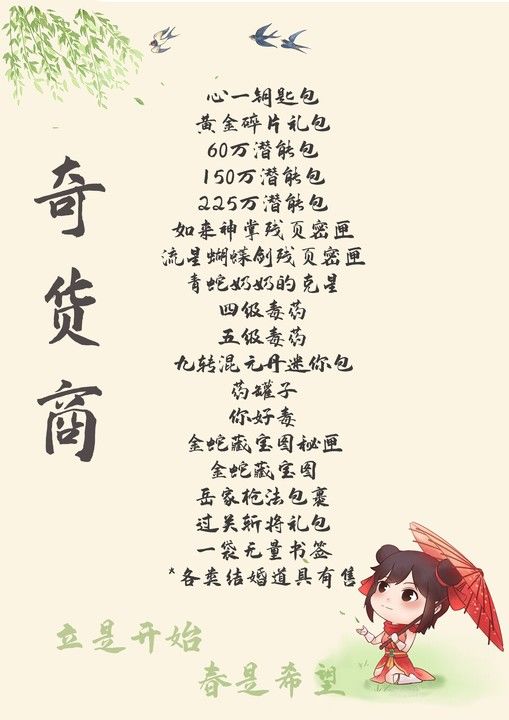 奇货商
心一钥匙包
黄金碎片礼包
60万潜能包
150万潜能包
225万潜能包
如来神掌残页密匣
流星蝴蝶剑残页密匣
青蛇奶奶的克星
四级毒药
五级毒药
九转混元丹迷你包
药罐子
你好毒
金蛇藏宝图秘匣
金蛇藏宝图
岳家枪法包裹
过关斩将礼包
一袋无量书签
*各类结婚道具有售
立是开始
春是希望